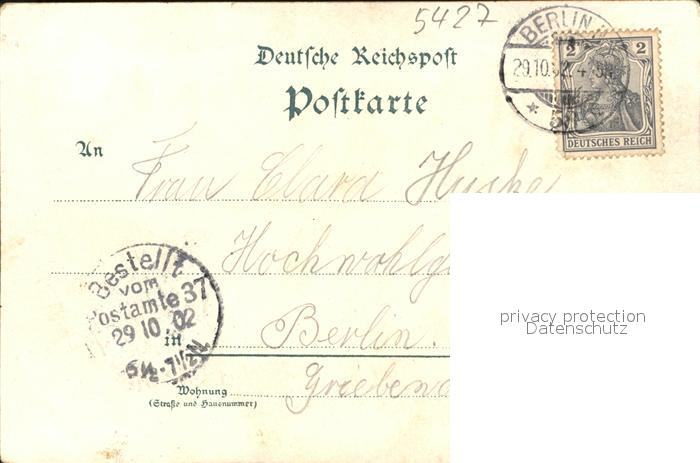 5427
Deutsche Reichspost
Postkarte
BERLIN
29.10.02
2 2
DEUTSCHES REICH
An
Frau Clara
Hochwohlg
Bestellt
vom
Postamte 37
29 10.02
6½-7½N.
in Berlin.
Wohnung
(Straße und Hausnummer)
privacy protection
Datenschutz